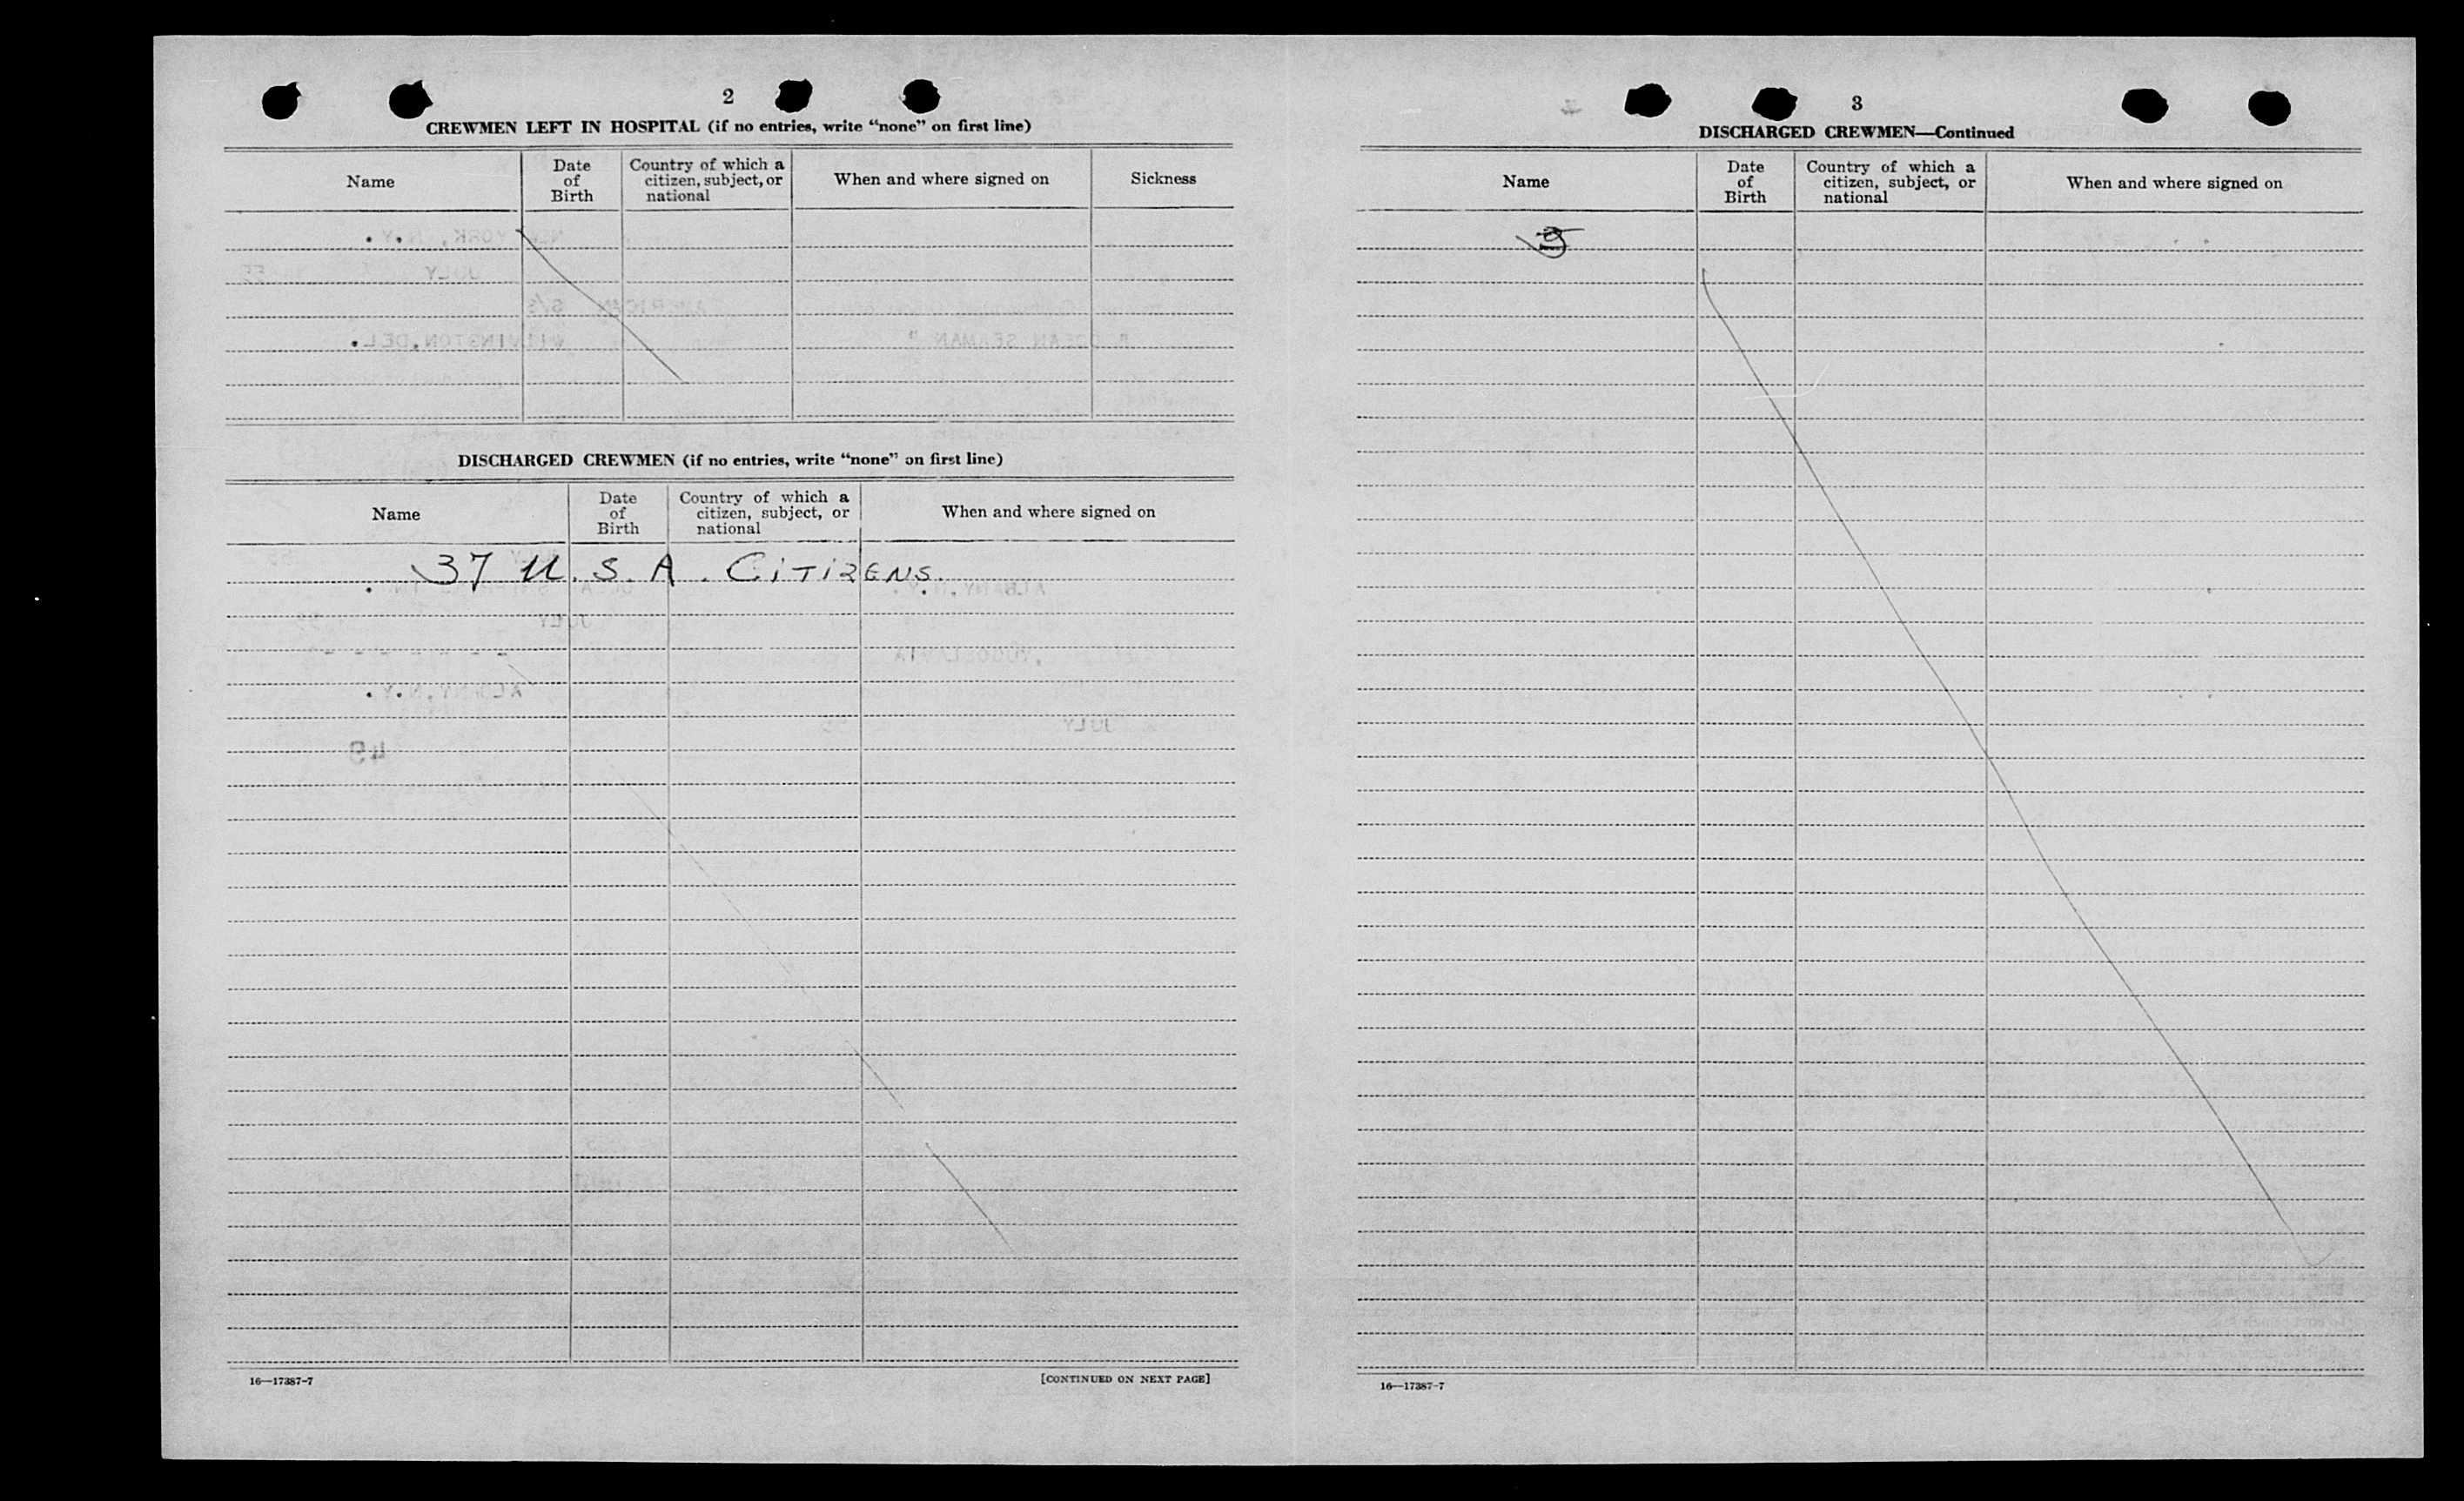 2
CREWMEN LEFT IN HOSPITAL (if no entries, write “none” on first line)
Name
Date of Birth
Country of which a citizen, subject, or national
When and where signed on
Sickness
NEW YORK, N.Y.
JULY
AMERICAN S/S
WILMINGTON, DEL.
" OCEAN SEAMAN "
DISCHARGED CREWMEN (if no entries, write “none” on first line)
Name
Date of Birth
Country of which a citizen, subject, or national
When and where signed on
37 U.S.A. CITIZENS.
ALBANY, N.Y.
JULY
,YUGOSLAVIA
ALBANY, N.Y.
JULY
49
16—17387-7
[CONTINUED ON NEXT PAGE]
3
DISCHARGED CREWMEN—Continued
Name
Date of Birth
Country of which a citizen, subject, or national
When and where signed on
16—17387-7